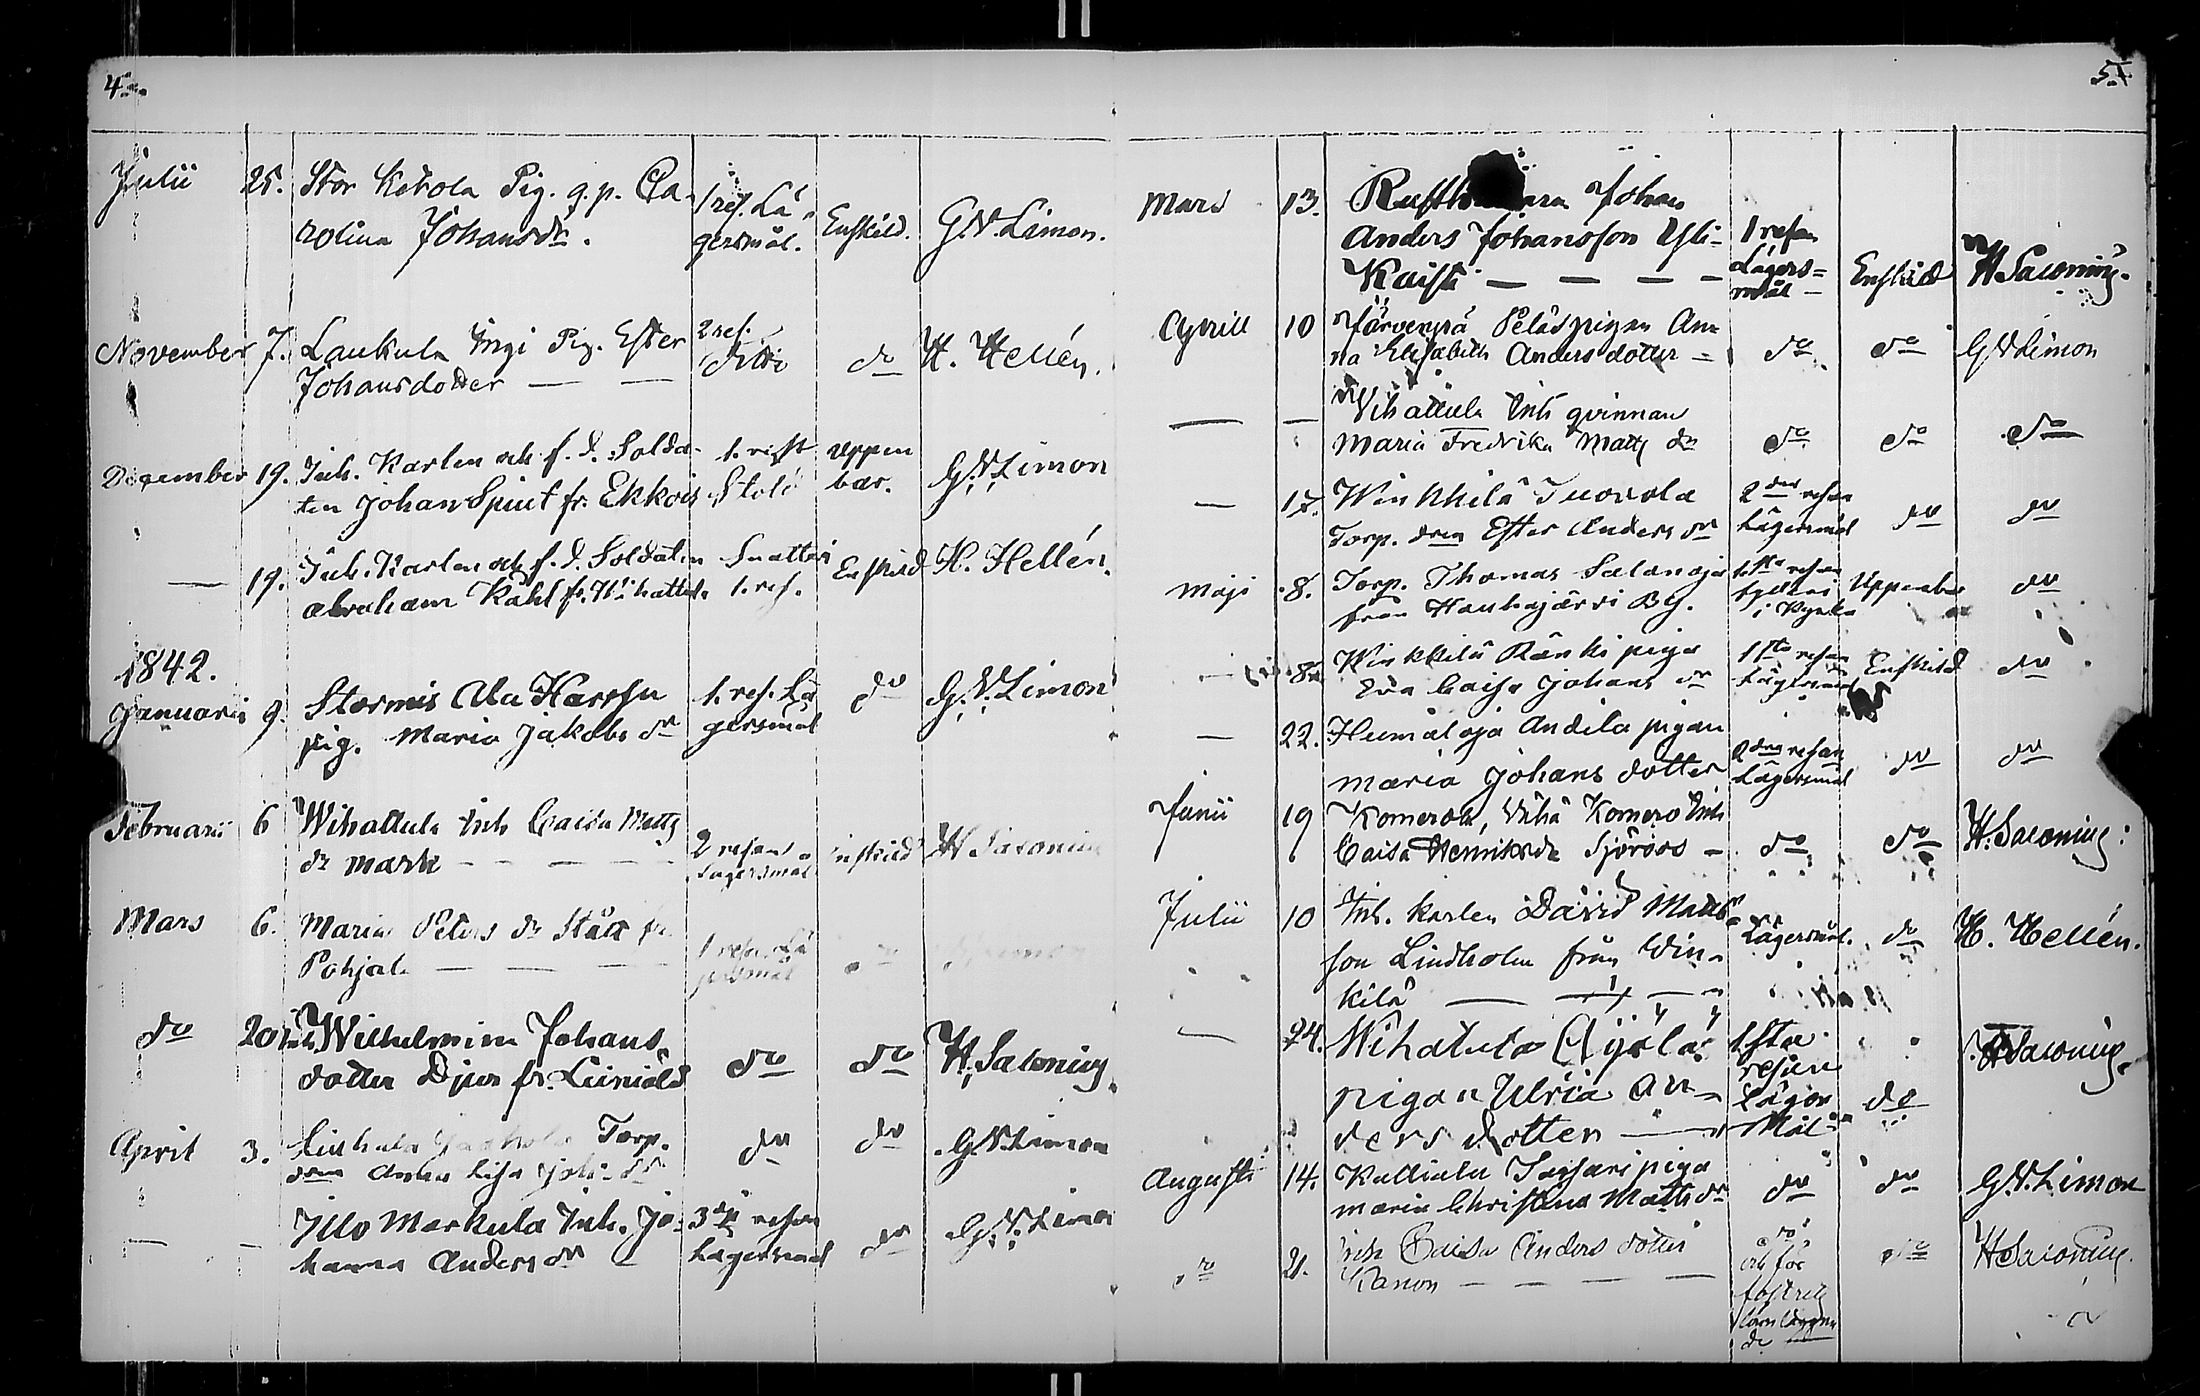 4.
Julii 25. Stor Ketola Pig. g. p. Ca-
rolina Johansdr. 1 res. Lä-
gersmål. Enskild. G. N. Limon.
November 7. Laukula Ingi Pig. Ester
Johansdotter — — 2 res. ditto do H. Hellén.
December 19. Inh. Karlen och f. d. Solda-
ten Johan Spint fr. Ekkois 1. resp. Stöld Uppen
bar. G. N. Limon
— 19. Inh. Karlen och f. d. Soldaten
Abraham Kahl fr. Wihattula Snatteri
1. res. Enskild H. Hellén.
1842.
Januarii 9. Stormis Ala Harrhu
pig. Maria Jakobs dr 1. res. Lä
gersmål do G. N. Limon
Februarii 6 Wihattula Inh Caisa Matts
dr Mark — — — — 2 resan
Lägersmål Enskild H Saconius
Mars 6. Maria Peters dr Stålt fr
Pohjal — — — 1 resan Lä
gersmål do Limon
do 20 Inh Wilhelmina Johans
dotter Djur fr. do do H. Saconius
April 3. Torp.
dren Anna Lisa Joh. dr do do G. N. Limon
— — Illo Markula Inh. Jo-
hanna Anders dr 3dje resan
Lägersmål do G. N. Limon
5.
Mars 13. Johan
Anders Johansson Yli-
Kaisti — — — — 1 resan
Lägers-
mål — Enskild H. Saconius.
April 10 Järvenpä Peläs pigan An
na Elisabeth Anders dotter — do do G N Limon
— — Wihattula Inh qvinnan
Maria Fredrika Matts dr do do do
— 17. Winkkilä Tuorola
Torp. dren Ester Anders dr 2 dra resan
Lägersmål do do
Maji 8. Torp. Thomas Salanoja
från Hauhajärvi By. 1sta resan
fylleri
i Kyrka Uppenbar do
— 8. Winkkilä Ränki piga
Eva Caisa Johans dr 1sta resan
Lägersmål Enskild do
— 22. Heinäloja Andila pigan
Maria Johans dotter 2 dra resan
Lägersmål do do
Junii 19 Komerola, Vähä Komero Inh
Caisa Henriksdr Sjöroos — do do H. Saconius:
Julii 10 Inh. Karlen David Matts
son Lindholm från Win-
kilä — — — Lägersmål. do H. Hellén.
— 24. Wihatula Äijälä
pigan Ulrica An-
ders dotter — 1sta
resan
Läger
Mål do H Saconius.
Augusti 14. Kulliala Saghari piga
Maria Christina Matts dr do do G. N. Limon
do 21. Inh Caisa Anders dotter
Kanon — — — — do
och för
fosters
do H Saconius.